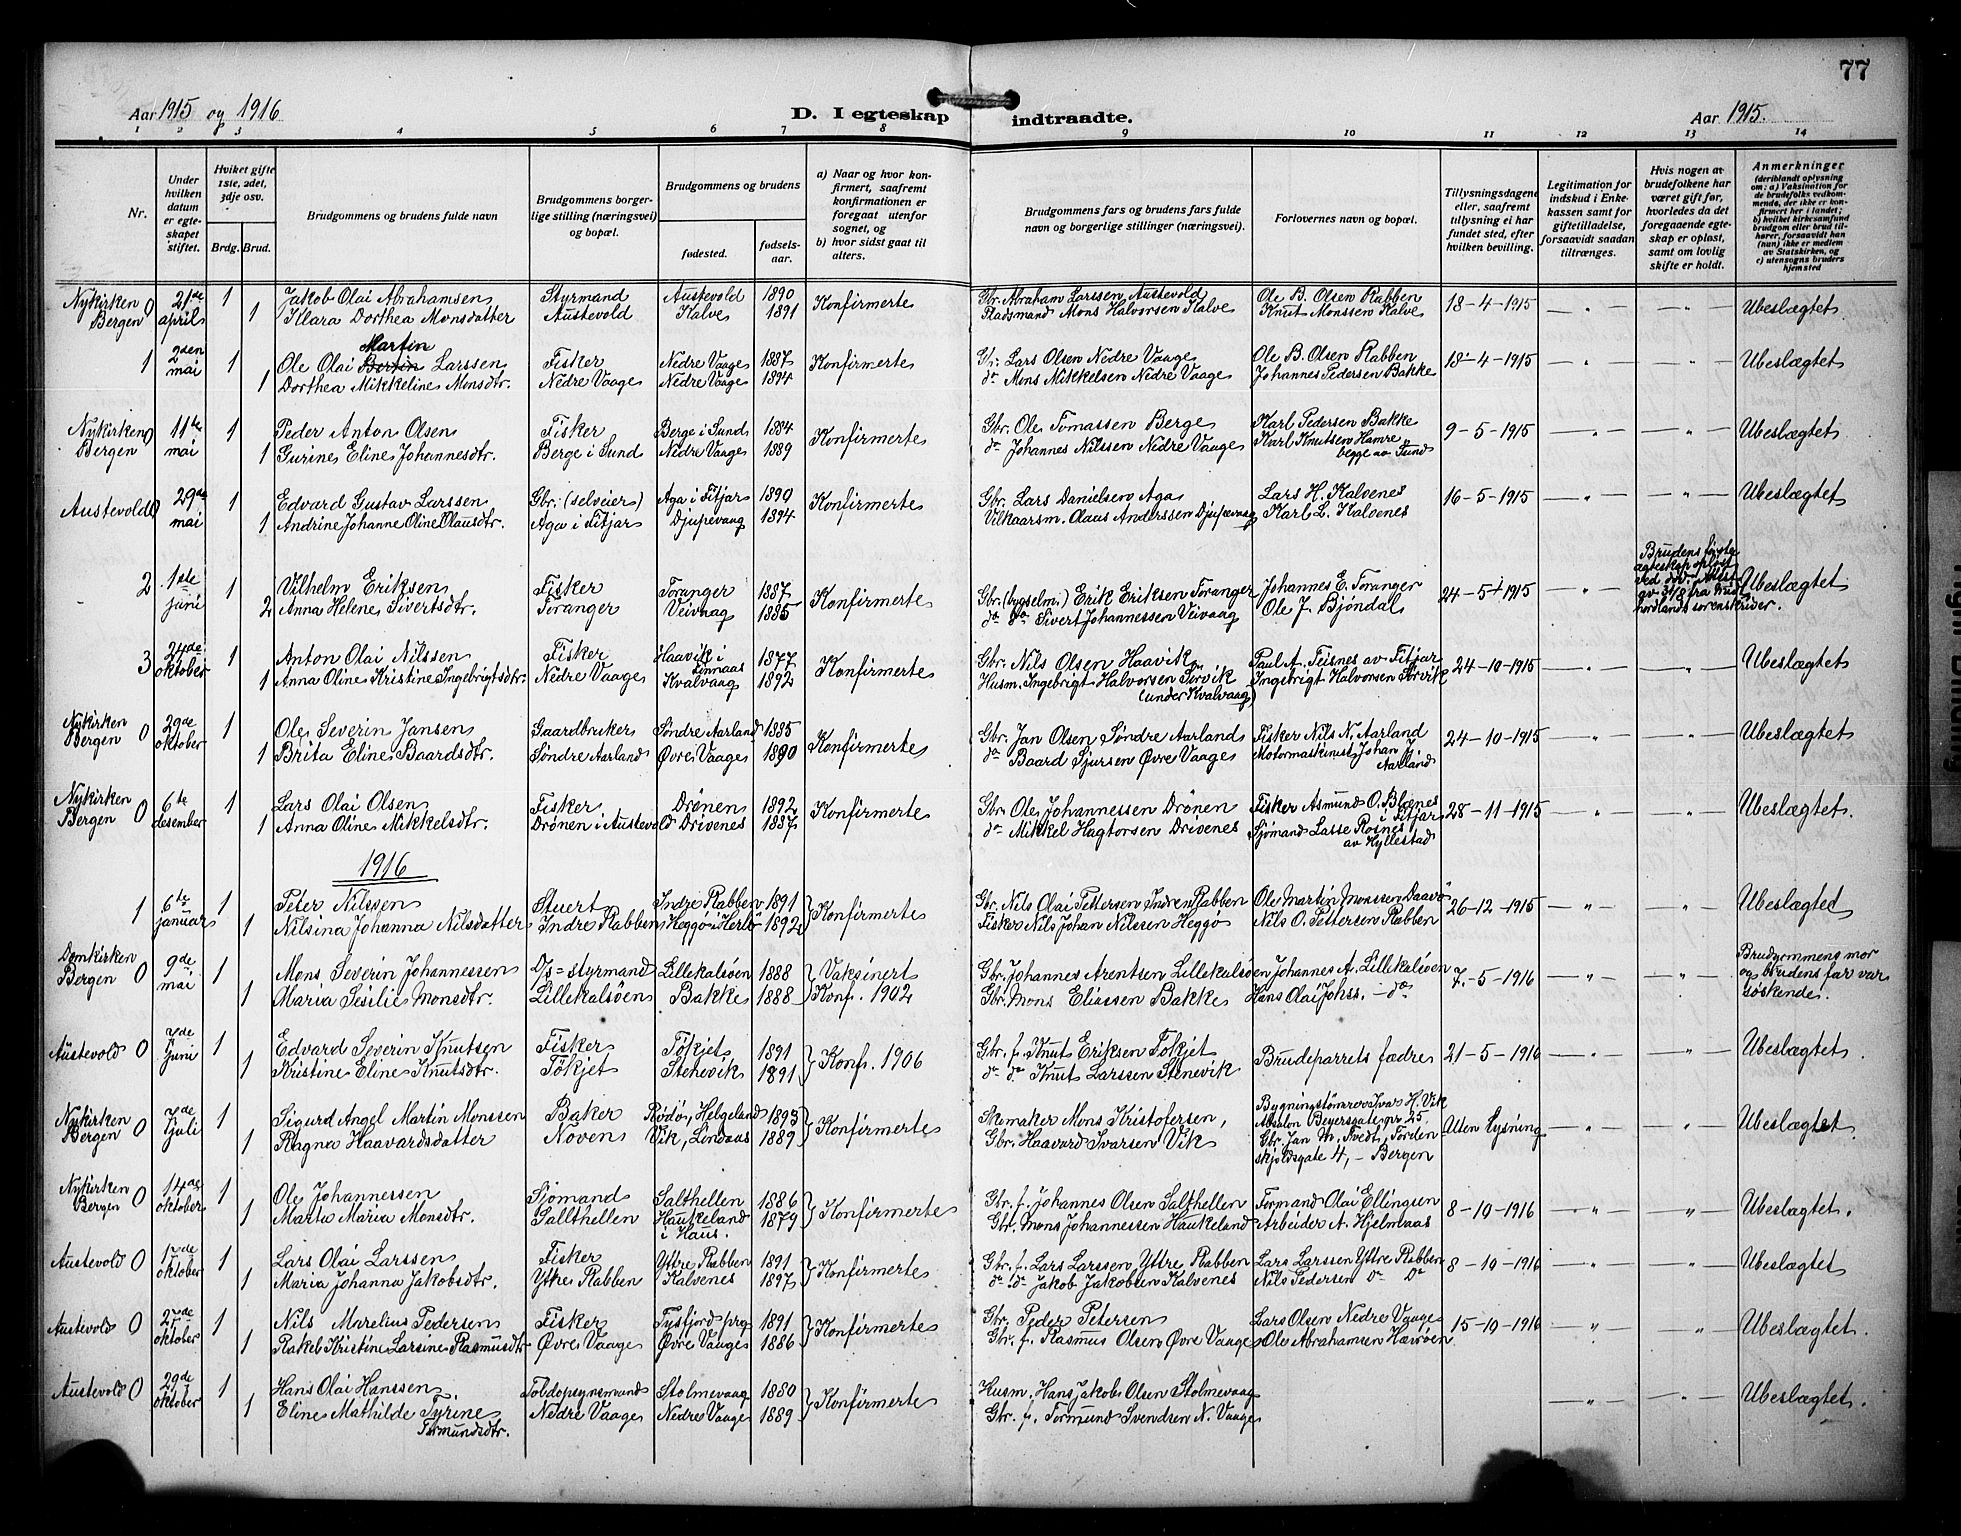 77
Aar 1915 og 1916 D. I egteskap indtraadte. Aar 1915.
1 2 3 4 5 6 7 8 9 10 11 12 13 14
Nr.
Under hvilken datum er egteskapet stiftet.
Hviket gifte 1ste, 2det, 3dje osv.
Brdg. Brud.
Brudgommens og brudens fulde navn
Brudgommens borgerlige stilling (næringsvei) og bopæl.
Brudgommens og brudens
fødested.
fødselsaar.
a) Naar og hvor konfirmert, saafremt konfirmationen er foregaat utenfor sognet, og
b) hvor sidst gaat til alters.
Brudgommens fars og brudens fars fulde navn og borgerlige stillinger (næringsvei).
Forlovernes navn og bopæl.
Tillysningsdagene eller, saafremt tillysning ei har fundet sted, efter hvilken bevilling.
Legitimation for indskud i Enkekassen samt for giftetilladelse, forsaavidt saadan tiltrænges.
Hvis nogen av brudefolkene har været gift før, hvorledes da det foregaaende egteskap er opløst, samt om lovlig skifte er holdt.
Anmerkninger
(deriblandt oplysning om: a) Vaksination for de brudefolks vedkommende, der ikke er konfirmert her i landet; b) hvilket kirkesamfund brudgom eller brud tilhører, forsaavidt han (hun) ikke er medlem av Statskirken, og c) utensogns bruders hjemsted
Nykirken 0 21de 1 Jakob Olai Abrahamsen Styrmand Austevold 1890 Konfirmerte Gbr. Abraham Larssen Austevold Ole B. Olsen Rabben 18-4-1915 — " — — " — Ubeslægtet
Bergen april 1 Klara Dorthea Monsdatter Austevold Kalve 1891 Mons Halvorsen Kalve Knut Monssen Kalve
Martin
1 2den mai 1 Ole Olai Bertin Larssen Fisker Nedre Vaage 1887 Konfirmerte Gbr. Lars Olsen Nedre Vaage Ole B. Olsen Rabben 18-4-1915 — " — — " — Ubeslægtet
1 Dorthea Mikkeline Monsdtr. Nedre Vaage Nedre Vaage 1894 do Mons Mikkelsen Nedre Vaage Johannes Pedersen Bakke
Nykirken 0 11te 1 Peder Anton Olsen Fisker Berge i Sund 1884 Konfirmerte Gbr. Ole Tomassen Berge Karl Pedersen Bakke 9-5-1915 — " — — " — Ubeslægtet
Bergen mai 1 Gurine Eline Johannesdtr. Berge i Sund Nedre Vaage 1889 do Johannes Nilssen Nedre Vaage Karl Knutsen Hamre
begge av Sund
Austevold 0 29de 1 Edvard Gustav Larssen Gbr. (selveier) Aga i Fitjar 1890 Konfirmerte Gbr. Lars Danielsen Aga Lars H. Kalvenes 16-5-1915 — " — — " — Ubeslægtet
mai 1 Andrine Johanne Oline Olausdtr. Aga i Fitjar Djupevaag 1894 Vilkaarsm. Olaus Anderssen Djupevaag Karl L. Kalvenes
2 1ste 1 Vilhelm Eriksen Fisker Toranger 1887 Konfirmerte Gbr. (bygselm.) Erik Eriksen Toranger Johannes E. Toranger 24-5-1915 — " — Brudens første egteskap opløst ved død. Attest av 31/8 fra Midhordlands sorenskriver. Ubeslægtet
juni 2 Anna Helene Sivertsdtr. Toranger Veivaag 1885 do do Sivert Johannessen Veivaag Ole J. Bjøndal
3 24de 1 Anton Olai Nilssen Fisker Haavik i Linnaas 1877 Konfirmerte Gbr. Nils Olsen Haavik Paul A. Teisnes av Fitjar 24-10-1915 — " — — " — Ubeslægtet
oktober 1 Anna Oline Kristine Ingebrigtsdtr. Nedre Vaage Kvalvaag 1892 Husm. Ingebrigt Halvorsen Sørvik Ingebrigt Halvorsen Sørvik
(under Kvalvaag)
Nykirken 0 29de 1 Ole Severin Jansen Gaardbruker Søndre Aarland 1885 Konfirmerte Gbr. Jan Olsen Søndre Aarland Fisker Nils N. Aarland 24-10-1915 — " — — " — Ubeslægtet
Bergen oktober 1 Brita Eline Baardsdtr. Søndre Aarland Øvre Vaage 1890 do Baard Sjursen Øvre Vaage Motormaskinist Johan Aarland
Nykirken 0 6te 1 Lars Olai Olsen Fisker Drönen 1892 Konfirmerte Gbr. Ole Johannessen Drönen Fisker Asmund O. Blænes i Fitjar 28-11-1915 — " — — " — Ubeslægtet.
Bergen desember 1 Anna Oline Mikkelsdtr. Drönen i Austevold Drivenes 1887 do Mikkel Hagtorsen Drivenes Sjömand Lasse Rosnes av Hyllestad
1916
1 6te 1 Peter Nilssen Stuert Indre Rabben 1891 } Konfirmerte Gbr. Nils Olai Pettersen Indre Rabben Ole Martin Monssen Daavö 26-12-1915 — " — — " — Ubeslægted
januar 1 Nilsina Johanna Nilsdatter Indre Rabben Heggö i Herlö 1892 Fisker Nils Johan Nilssen Heggö Nils O. Pettersen Rabben
Domkirken 0 9de 1 Mons Severin Johannessen D/s=styrmand Lillekalsöen 1888 } Vaksinert Gbr. Johannes Arentsen Lillekalsöen Johannes A. Lillekalsöen 7-5-1916 — " — — " — Brudgommens mor og brudens far var söskende.
Bergen mai 1 Maria Sesilie Monsdtr. Lillekalsöen Bakke 1888 } Konf. 1902 Gbr. Mons Eliassen Bakke Hans Olai Johss. — do
Austevold 0 7de 1 Edvard Severin Knutsen Fisker Tökjet 1891 } Konf. 1906 Gbr. f. Knut Eriksen Tökjet Brudeparrets fædre 21-5-1916 — " — — " — Ubeslægtet
juni 1 Kristine Eline Knutsdtr. Tökjet Stenevik 1891 do do Knut Larssen Stenevik
Nykirken 0 7de 1 Sigurd Angel Martin Monssen Baker Rödö, Helgeland 1893 } Konfirmerte Skomaker Mons Kristofersen, Bygningstömrer Ivar H. Vik Absalon Beyersgate nr 25. Uten Lysning — " — — " — Ubeslægtet
Bergen juli 1 Ragna Haavardsdatter Noven Vik, Lindaas 1889 Gbr. Haavard Ivarsen Vik Gbr. Jan M. Tvedt, Tordenskjoldsgate 4, — Bergen
Nykirken 0 14de 1 Ole Johannessen Sjömand Salthellen 1886 } Konfirmerte Gbr. f. Johannes Olsen Salthellen Formand Olai Ellingsen 8-10-1916 — " — " Ubeslægtet.
Bergen oktober 1 Marta Maria Monsdtr. Sallthellen Haukeland i Haus. 1879 Gbr. Mons Johannessen Haukeland Arbeider A. Hjelmaas
Austevold 0 17de 1 Lars Olai Larssen Fisker Yttre Rabben 1891 } Konfirmerte Gbr. f. Lars Larssen Yttre Rabben Lars Larssen Yttre Rabben 8-10-1916 — " — — " — Ubeslægtet
oktober 1 Maria Johanna Jakobsdtr. Yttre Rabben Kalvenes 1897 do do Jakob Jakobsen Kalvenes Nils Pedersen do do
Austevold 0 27de 1 Nils Marelius Pedersen Fisker Tysfjord prg 1891 } Konfirmerte Gbr. Peder Petersen Lars Olsen Nedre Vaage 15-10-1916 " " Ubeslægtet.
oktober 1 Rakel Kristine Larsine Rasmusdtr. Øvre Vaage Øvre Vaage 1886 Gbr. f. Rasmus Olsen Øvre Vaage Ole Abrahamsen Hæröen
Austevold 0 29de 1 Hans Olai Hanssen Toldopsynsmand Stolmevaag 1880 } Konfirmerte Husm. Hans Jakob Olsen Stolmevaag — " — — " — Ubeslægtet.
oktober 1 Eline Mathilde Tyrine Tormundsdtr. Nedre Vaage Nedre Vaage 1889 Gbr. f. Tormund Svendsen N. Vaage